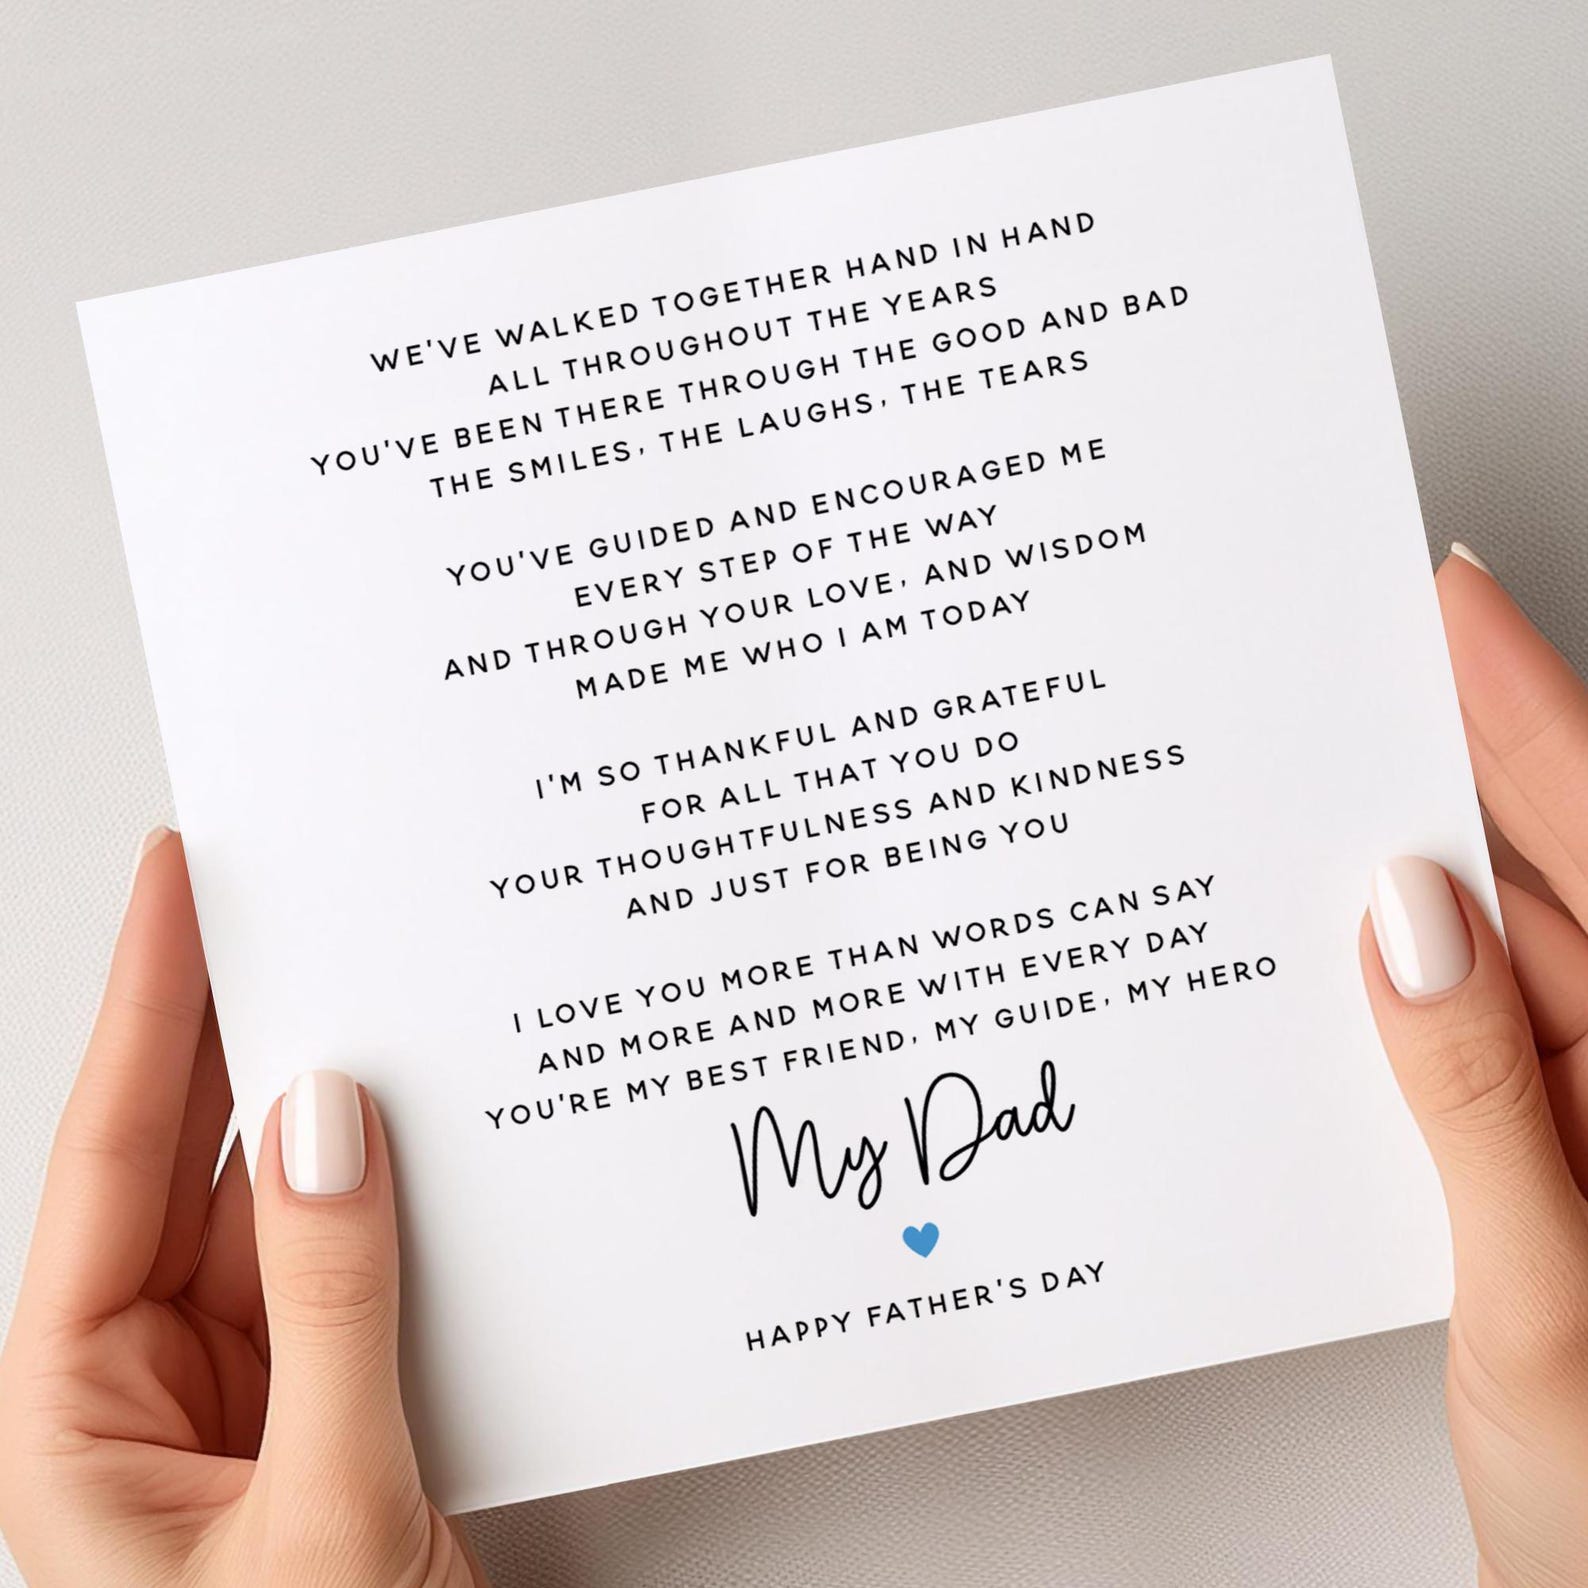 WE'VE WALKED TOGETHER HAND IN HAND
ALL THROUGHOUT THE YEARS
YOU'VE BEEN THERE THROUGH THE GOOD AND BAD
THE SMILES, THE LAUGHS, THE TEARS
YOU'VE GUIDED AND ENCOURAGED ME
EVERY STEP OF THE WAY
AND THROUGH YOUR LOVE, AND WISDOM
MADE ME WHO I AM TODAY
I'M SO THANKFUL AND GRATEFUL
FOR ALL THAT YOU DO
YOUR THOUGHTFULNESS AND KINDNESS
AND JUST FOR BEING YOU
I LOVE YOU MORE THAN WORDS CAN SAY
AND MORE AND MORE WITH EVERY DAY
YOU'RE MY BEST FRIEND, MY GUIDE, MY HERO
My Dad
HAPPY FATHER'S DAY